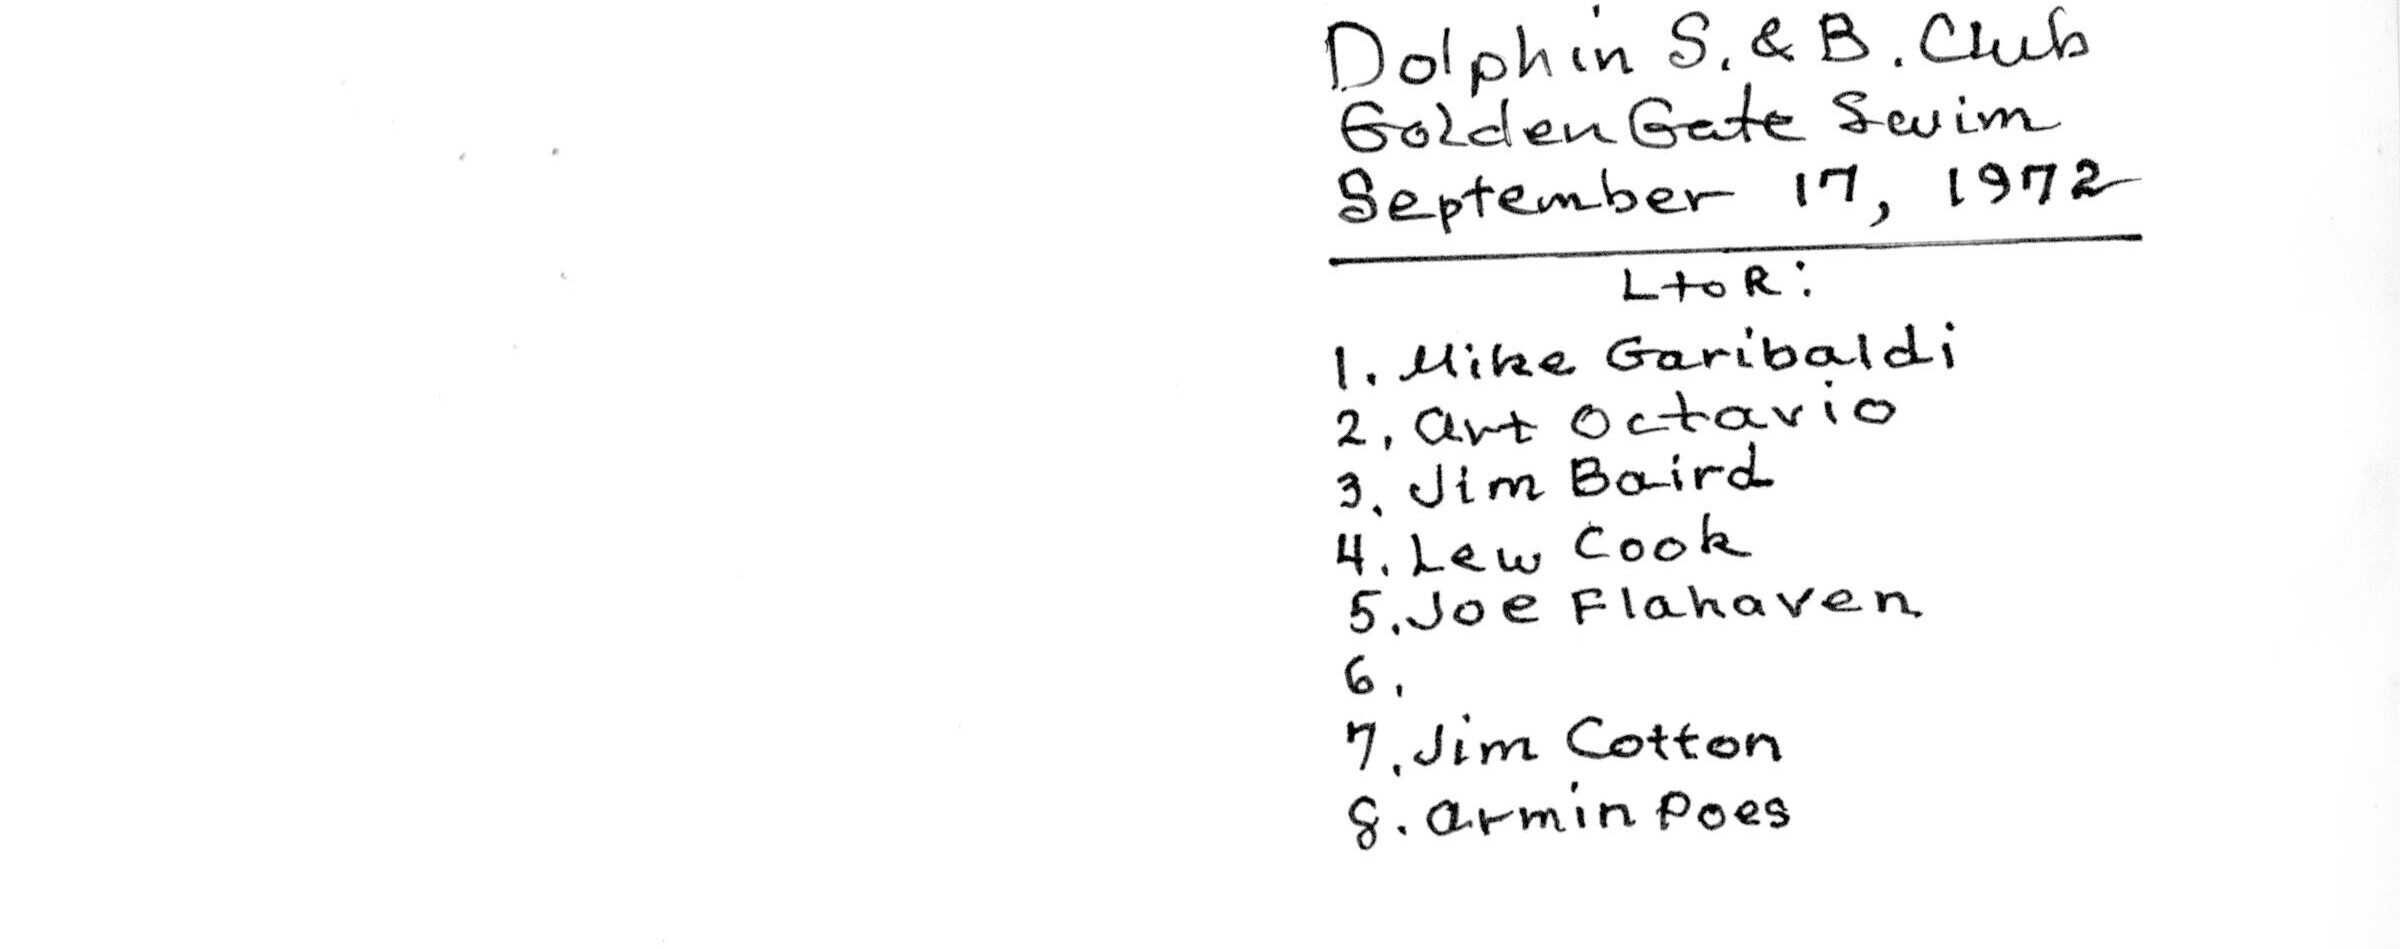 Dolphin S. & B. Club
Golden Gate Swim
September 17, 1972
L to R:
1. Mike Garibaldi
2. Art Octavio
3. Jim Baird
4. Lew Cook
5. Joe Flahaven
6.
7. Jim Cotton
8. Armin Poes